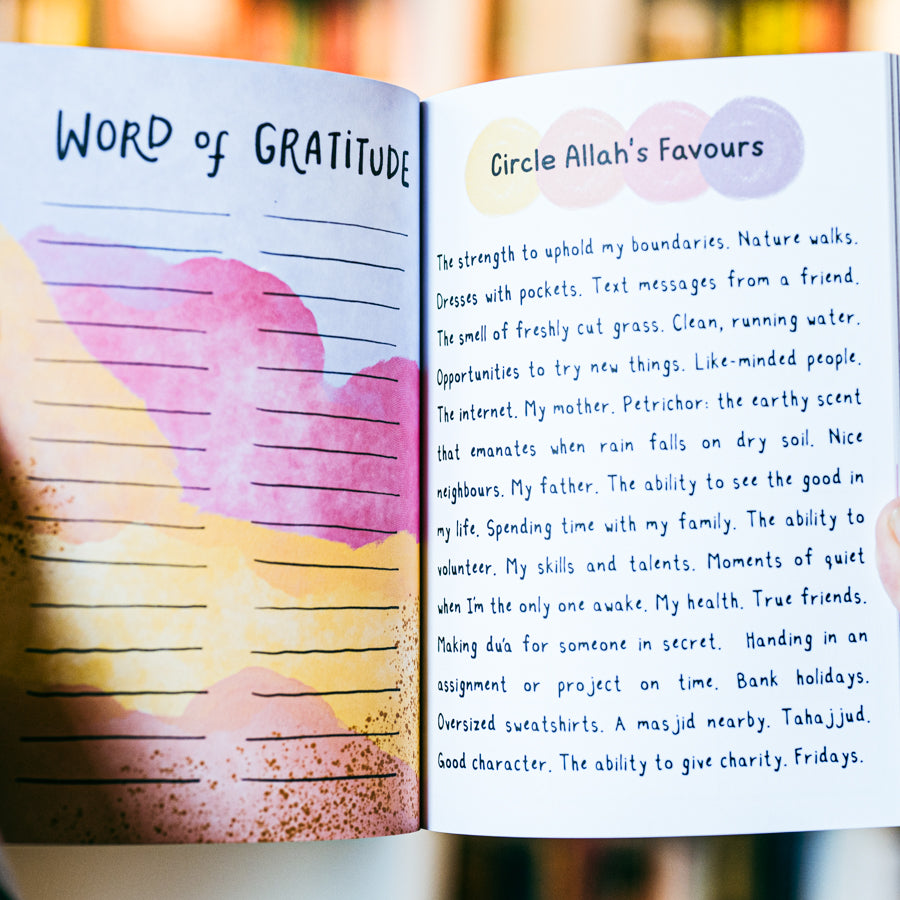 WORD of GRATITUDE
Circle Allah's Favours
The strength to uphold my boundaries. Nature walks.
Dresses with pockets. Text messages from a friend.
The smell of freshly cut grass. Clean, running water.
Opportunities to try new things. Like-minded people.
The internet. My mother. Petrichor: the earthy scent
that emanates when rain falls on dry soil. Nice
neighbours. My father. The ability to see the good in
my life. Spending time with my family. The ability to
volunteer. My skills and talents. Moments of quiet
when I'm the only one awake. My health. True friends.
Making du'a for someone in secret. Handing in an
assignment or project on time. Bank holidays.
Oversized sweatshirts. A masjid nearby. Tahajjud.
Good character. The ability to give charity. Fridays.